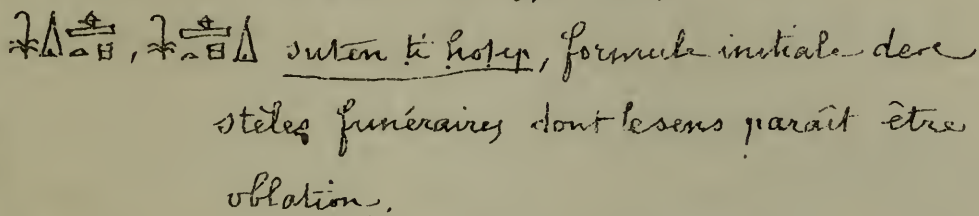 𓇓𓏙𓊵𓏏𓊪, 𓇓𓊵𓏏𓊪𓏙 suten ti hotep, formule initiale des
stèles funéraires dont le sens paraît être
oblation.